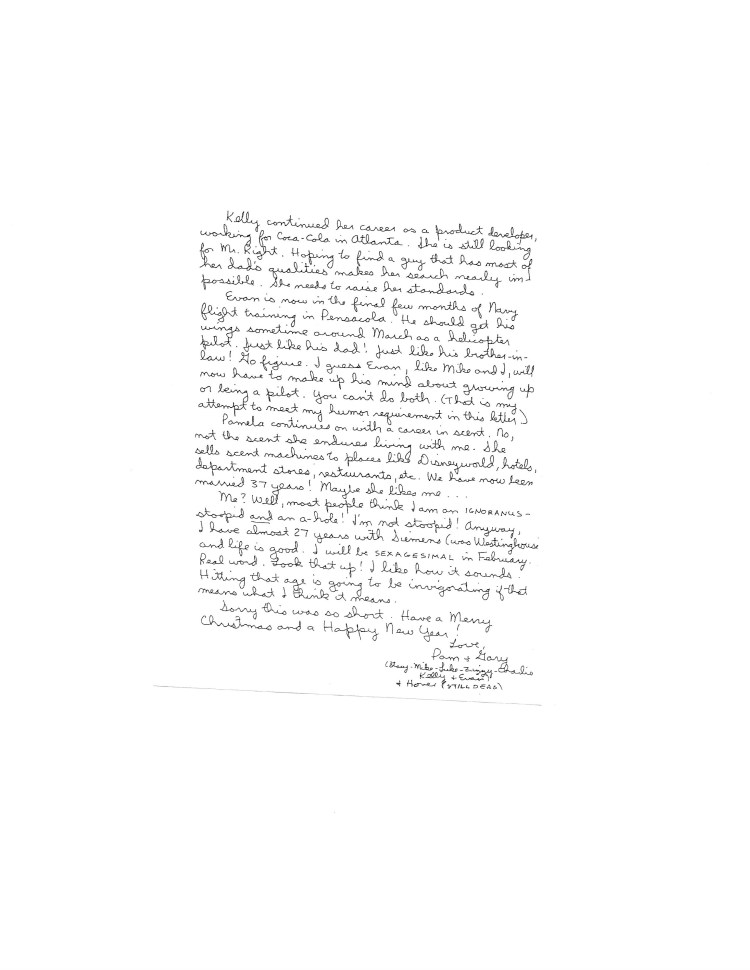 Kelly continued her career as a product developer,
working for Coca-Cola in Atlanta. She is still looking
for Mr. Right. Hoping to find a guy that has most of
her dad's qualities makes her search nearly im-
possible. She needs to raise her standards.
Evan is now in the final few months of Navy
flight training in Pensacola. He should get his
wings sometime around March as a helicopter
pilot. Just like his dad! Just like his brother-in-
law! Go figure. I guess Evan, like Mike and I, will
now have to make up his mind about growing up
or being a pilot. You can't do both. (That is my
attempt to meet my humor requirement in this letter)
Pamela continues on with a career in scent. No,
not the scent she endures living with me. She
sells scent machines to places like Disneyworld, hotels,
department stores, restaurants, etc. We have now been
married 37 years! Maybe she likes me ...
Me? Well, most people think I am an IGNORANUS -
stoopid and an a-hole! I'm not stoopid! Anyway,
I have almost 27 years with Siemens (was Westinghouse
and life is good. I will be SEXAGESIMAL in February.
Real word. Look that up! I like how it sounds.
Hitting that age is going to be invigorating if that
means what I think it means.
Sorry this was so short. Have a Merry
Christmas and a Happy New Year!
Love,
Pam + Gary
Mike-Luke-Ziggy-Charlie
Kelly + Evan)
+ Hover (STILL DEAD)